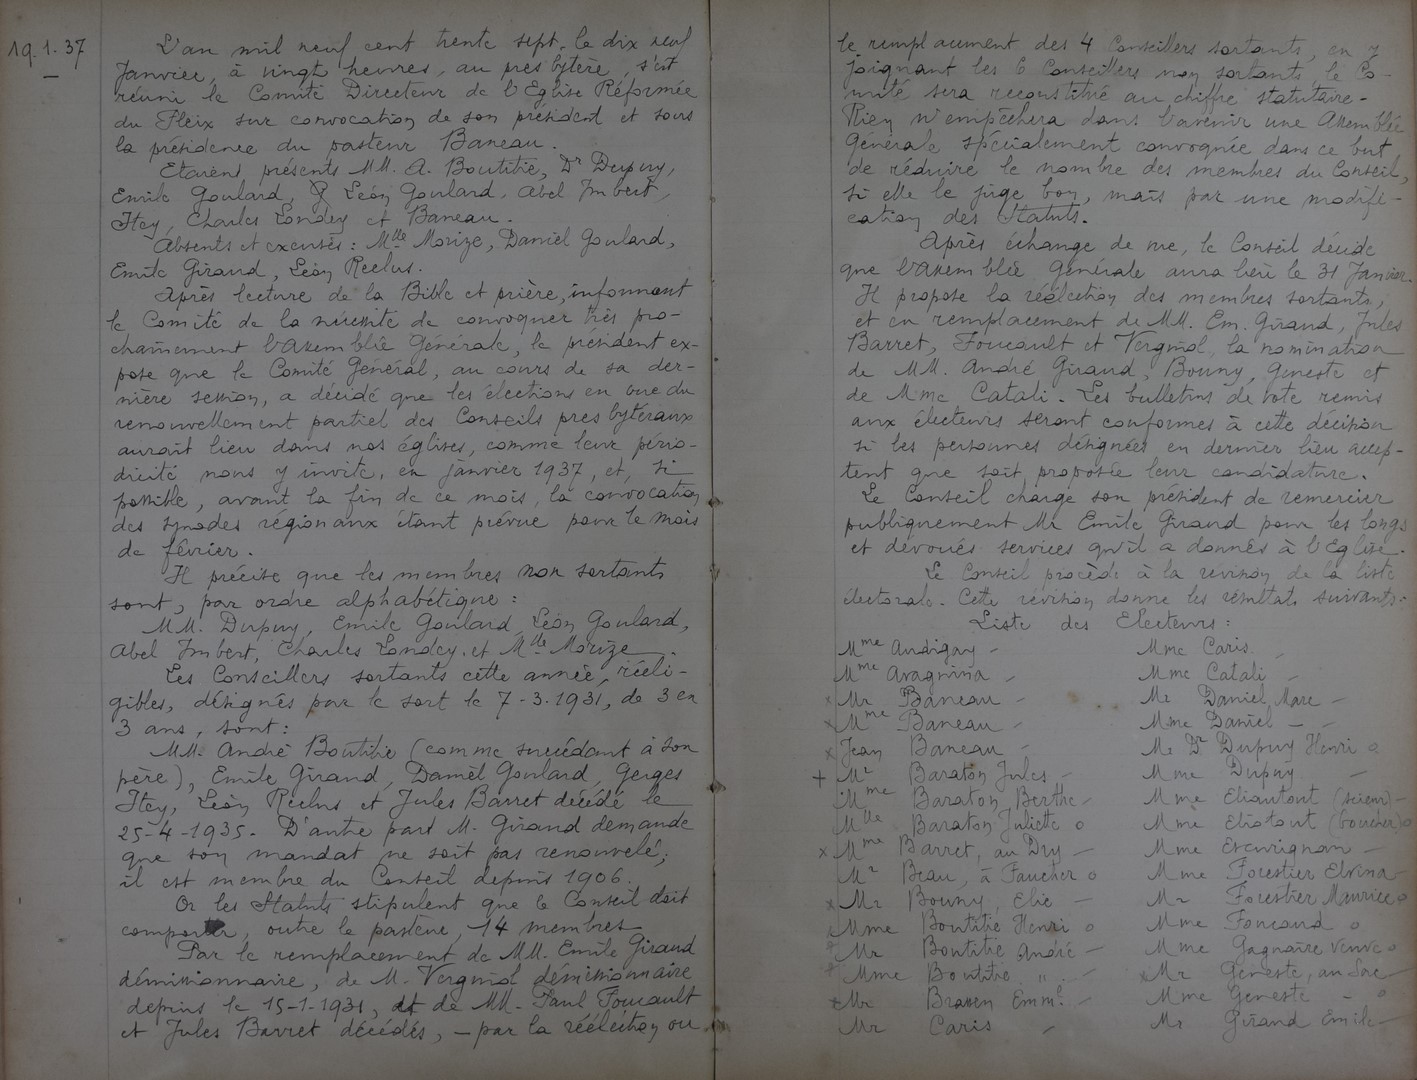 19.1.37
L'an mil neuf cent trente sept, le dix neuf
Janvier, à vingt heures, au presbytère, s'est
réuni le Comité Directeur de l'Eglise Réformée
du Fleix sur convocation de son président et sous
la présidence du pasteur Baneau.
Etaient présents MM. A. Boutitie, Dr Dupuy,
Emile Goulard, Léon Goulard, Abel Imbert,
Itey, Charles Londey et Baneau.
Absents et excusés : Mlle Morize, Daniel Goulard,
Emile Giraud, Léon Reclus.
Après lecture de la Bible et prière, informant
le Comité de la nécessité de convoquer très pro-
chainement l'Assemblée Générale, le président ex-
pose que le Comité Général, au cours de sa der-
nière session, a décidé que les élections en vue du
renouvellement partiel des Conseils presbytéraux
aurait lieu dans nos églises, comme leur pério-
dicité nous y invite, en janvier 1937, et, si
possible, avant la fin de ce mois, la convocation
des synodes régionaux étant prévue pour le mois
de février.
Il précise que les membres non sortants
sont, par ordre alphabétique :
MM. Dupuy, Emile Goulard, Léon Goulard,
Abel Imbert, Charles Londey et Mlle Morize.
Les Conseillers sortants cette année, rééli-
gibles, désignés par le sort le 7-3-1931, de 3 en
3 ans, sont :
MM. André Boutitie (comme succédant à son
père), Emile Giraud, Daniel Goulard, Georges
Itey, Léon Reclus et Jules Barret décédé le
25-4-1935. D'autre part M. Giraud demande
que son mandat ne soit pas renouvelé ;
il est membre du Conseil depuis 1906.
Or les Statuts stipulent que le Conseil doit
comporter, outre le pasteur, 14 membres
Par le remplacement de MM. Emile Giraud
démissionnaire, de M. Vergniol démissionnaire
depuis le 15-1-1931, et de MM. Paul Foucault
et Jules Barret décédés, — par la réélection ou
le remplacement des 4 Conseillers sortants, en y
joignant les 6 Conseillers non sortants, le Co-
mité sera reconstitué au chiffre statutaire.
Rien n'empêchera dans l'avenir une Assemblée
Générale spécialement convoquée dans ce but
de réduire le nombre des membres du Conseil,
si elle le juge bon, mais par une modifi-
cation des Statuts.
Après échange de vue, le Conseil décide
que l'Assemblée Générale aura lieu le 31 Janvier.
Il propose la réélection des membres sortants,
et en remplacement de MM. Em. Giraud, Jules
Barret, Foucault et Vergniol, la nomination
de MM. André Giraud, Bouny, Geneste et
de Mme Catali. Les bulletins de vote remis
aux électeurs seront conformes à cette décision
si les personnes désignées en dernier lieu accep-
tent que soit proposée leur candidature.
Le Conseil charge son président de remercier
publiquement Mr Emile Giraud pour les longs
et dévoués services qu'il a donnés à l'Eglise.
Le Conseil procède à la révision de la liste
électorale. Cette révision donne les résultats suivants :
Liste des Electeurs :
Mme Audigay -
Mme Aragnina -
x Mr Baneau -
x Mme Baneau -
x Jean Baneau -
+ Mr Baraton Jules -
Mme Baraton Berthe -
Mlle Baraton Juliette o
x Mme Barret, au Dry -
Mr Beau, à Faucher o
x Mr Bouny, Elie -
Mme Boutitié Henri o
Mr Boutitié André -
Mme Boutitié " " -
x Mr Brassen Emml. -
Mr Caris -
Mme Caris -
Mme Catali -
Mr Daniel, Marc -
Mme Daniel -
Mr Dr Dupuy Henri o
Mme Dupuy -
Mme Eliautout (scieur) -
Mme Eliotout (boucher) o
Mme Escurignan -
Mme Forestier Elvina -
Mr Forestier Maurice o
Mme Foucaud o
Mme Gagnaire veuve o
x Mr Geneste, au Sac -
Mme Geneste - o
Mr Giraud Emile -